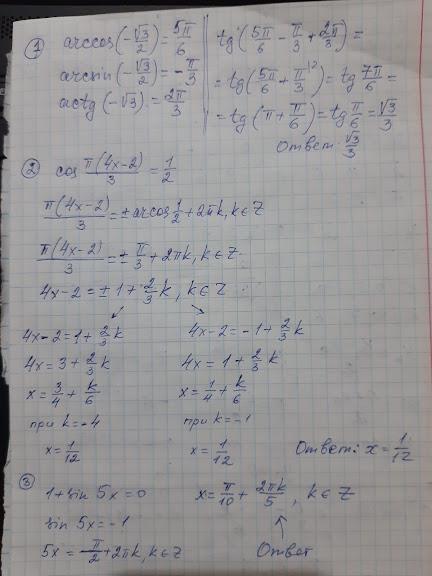 ① arccos(-√3/2) = 5π/6
arcsin(-√3/2) = -π/3
actg(-√3) = 2π/3
tg(5π/6 - π/3 + 2π/3) =
= tg(5π/6 + π/3) = tg 7π/6 =
= tg(π + π/6) = tg π/6 = √3/3
Ответ: √3/3
② cos π(4x-2)/3 = 1/2
π(4x-2)/3 = ± arcos 1/2 + 2πk, k∈Z
π(4x-2)/3 = ± π/3 + 2πk, k∈Z
4x-2 = ± 1 + 2/3 k, k∈Z
4x-2 = 1 + 2/3 k
4x = 3 + 2/3 k
x = 3/4 + k/6
при k=-4
x = 1/12
4x-2 = -1 + 2/3 k
4x = 1 + 2/3 k
x = 1/4 + k/6
при k=-1
x = 1/12
Ответ: x = 1/12
③ 1 + sin 5x = 0
sin 5x = -1
5x = -π/2 + 2πk, k∈Z
x = π/10 + 2πk/5, k∈Z
Ответ